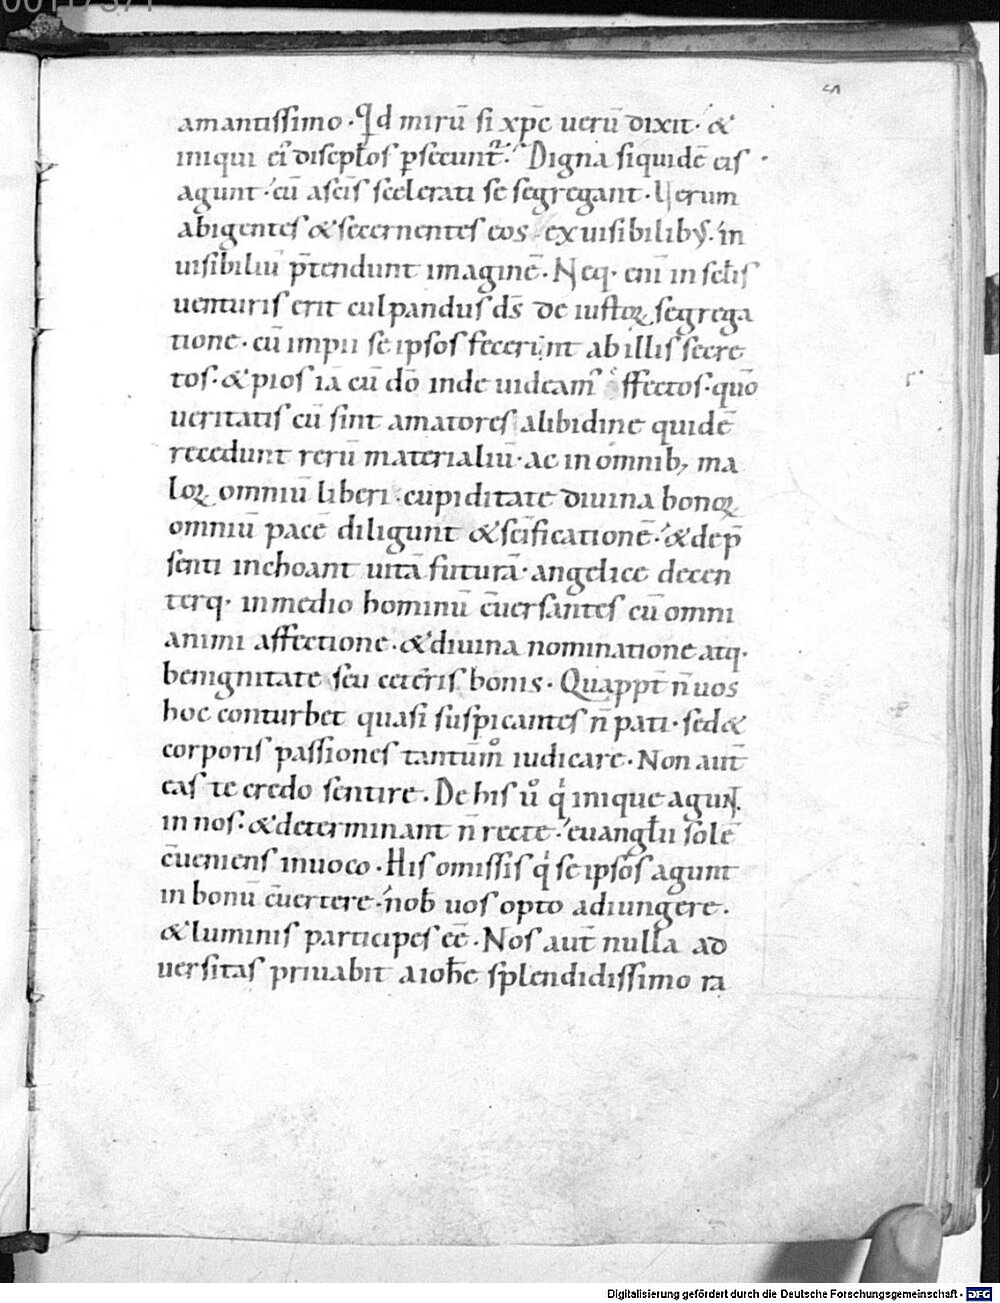 0011737
5
amantissimo · Qd mirū si xp̄c uerū dixit · &
iniqui ei᾿ discipłos p̱secunt᷑ · Digna siquidē eis
agunt · cū a scīs scelerati se segregant · Uerum
abigentes & secernentes eos ex uisibilibꝰ · in
uisibiliū p̄tendunt imaginē · Neq· enī in sc̄lis
uenturis erit culpandus ds̄ de iustoꝝ segrega
tione · cū impii se ipsos fecerint ab illis secre
tos · & pios iā cū dō inde uideam᾿ affectos · quō
ueritatis cū sint amatores a libidine quidē
recedunt rerū materialiū · ac in omnib; ma
loꝝ omniū liberi · cupiditate diuina bonoꝝ
omniū pacē diligunt & sc̄ificationē · & de p̄
senti inchoant uitā futurā · angelice decen
terq· in medio hominū c̄uersantes cū omni
animi affectione · & diuina nominatione atq·
benignitate seu ceteris bonis · Quappt̄ n̄ uos
hoc conturbet quasi suspicantes n̄ pati · sed &
corporis passiones tantūm̊ iudicare · Non aut̄
eas te credo sentire · De his u̇ qͥ inique agunt
in nos · & determinant n̄ recte · euangłii solē
c̄ueniens inuoco · His omissis qͥ se ipsos agunt
in bonū c̄uertere · nob̄ uos opto adiungere ·
& luminis participes eē · Nos aut̄ nulla ad
uersitas priuabit a ioħe splendidissimo ra
Digitalisierung gefördert durch die Deutsche Forschungsgemeinschaft - DFG